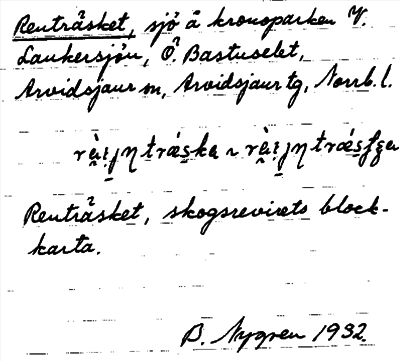 Renträsket, sjö å kronoparken V.
Laukersjön, Ö. Bastuselet,
Arvidsjaur sn, Arvidsjaur tg, Norrb. l.
Renträsket, skogsrevirets block-
karta.
B. Nygren 1932.